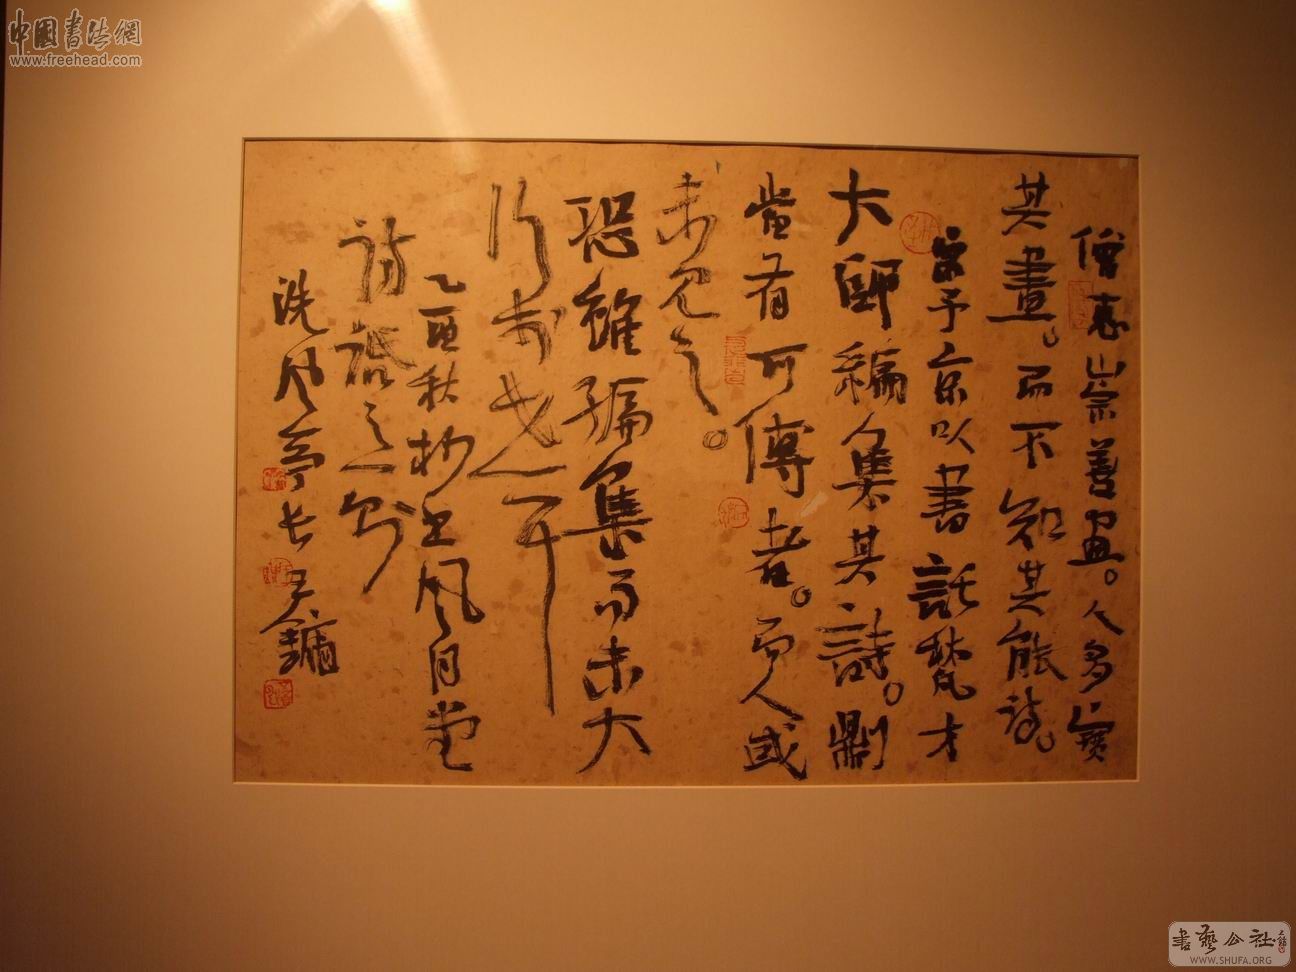 中國書法網
www.freehead.com
僧惠崇善畫。人多寶
其畫。而不知其能詩。
宋子京以書託梵才
大師編集其詩。則
當有可傳者。而人或
未見之。
恐雖編集而未大
行於世耳
乙酉秋抄上風月堂
詩話之一則
洗風亭長 鏞
書藝公社
WWW.SHUFA.ORG